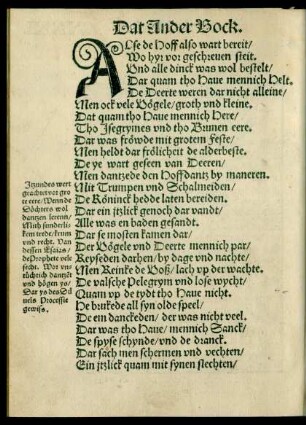 Dat Ander Bock.
Alse de Hoff also wart bereit/
Wo hyr vor geschreuen steit.
Vnd alle dinck was wol bestelt/
Dar quam tho Haue mennich Helt.
De Deerte weren dar nicht alleine/
Men ock vele Vögele/ groth vnd kleine.
Dat quam tho Haue mennich Here/
Tho Isegrymes vnd tho Brunen eere.
Dar was fröwde mit grotem Feste/
Men heldt dar frölicheit de alderbeste.
De ye wart geseen van Deeren/
Men dantzede den Hoffdantz by maneren.
Mit Trumpen vnd Schalmeiden/
De Köninck hedde laten bereiden.
Dar ein jtzlick genoch dar vandt/
Alle was en baden gesandt.
Dar se mosten kamen dar/
Der Vögele vnd Deerte mennich par/
Reyseden darhen/ by dage vnd nachte/
Men Reinke de Voß/ lach vp der wachte.
De valsche Pelegrym vnd lose wycht/
Quam vp de tydt tho Haue nicht.
He brukede all syn olde speel/
De ein danckeden/ der was nicht veel.
Dar was tho Haue/ mennich Sanck/
De spyse schynde/ vnd de dranck.
Dar sach men schermen vnd vechten/
Ein jtzlick quam mit synen slechten/
Itzundes wert
grote ere/ Wenn de
Döchters wol
dantzen leren/
vnd recht. Van
dessen Esaias/
de Prophete vele
secht. Wor vn-